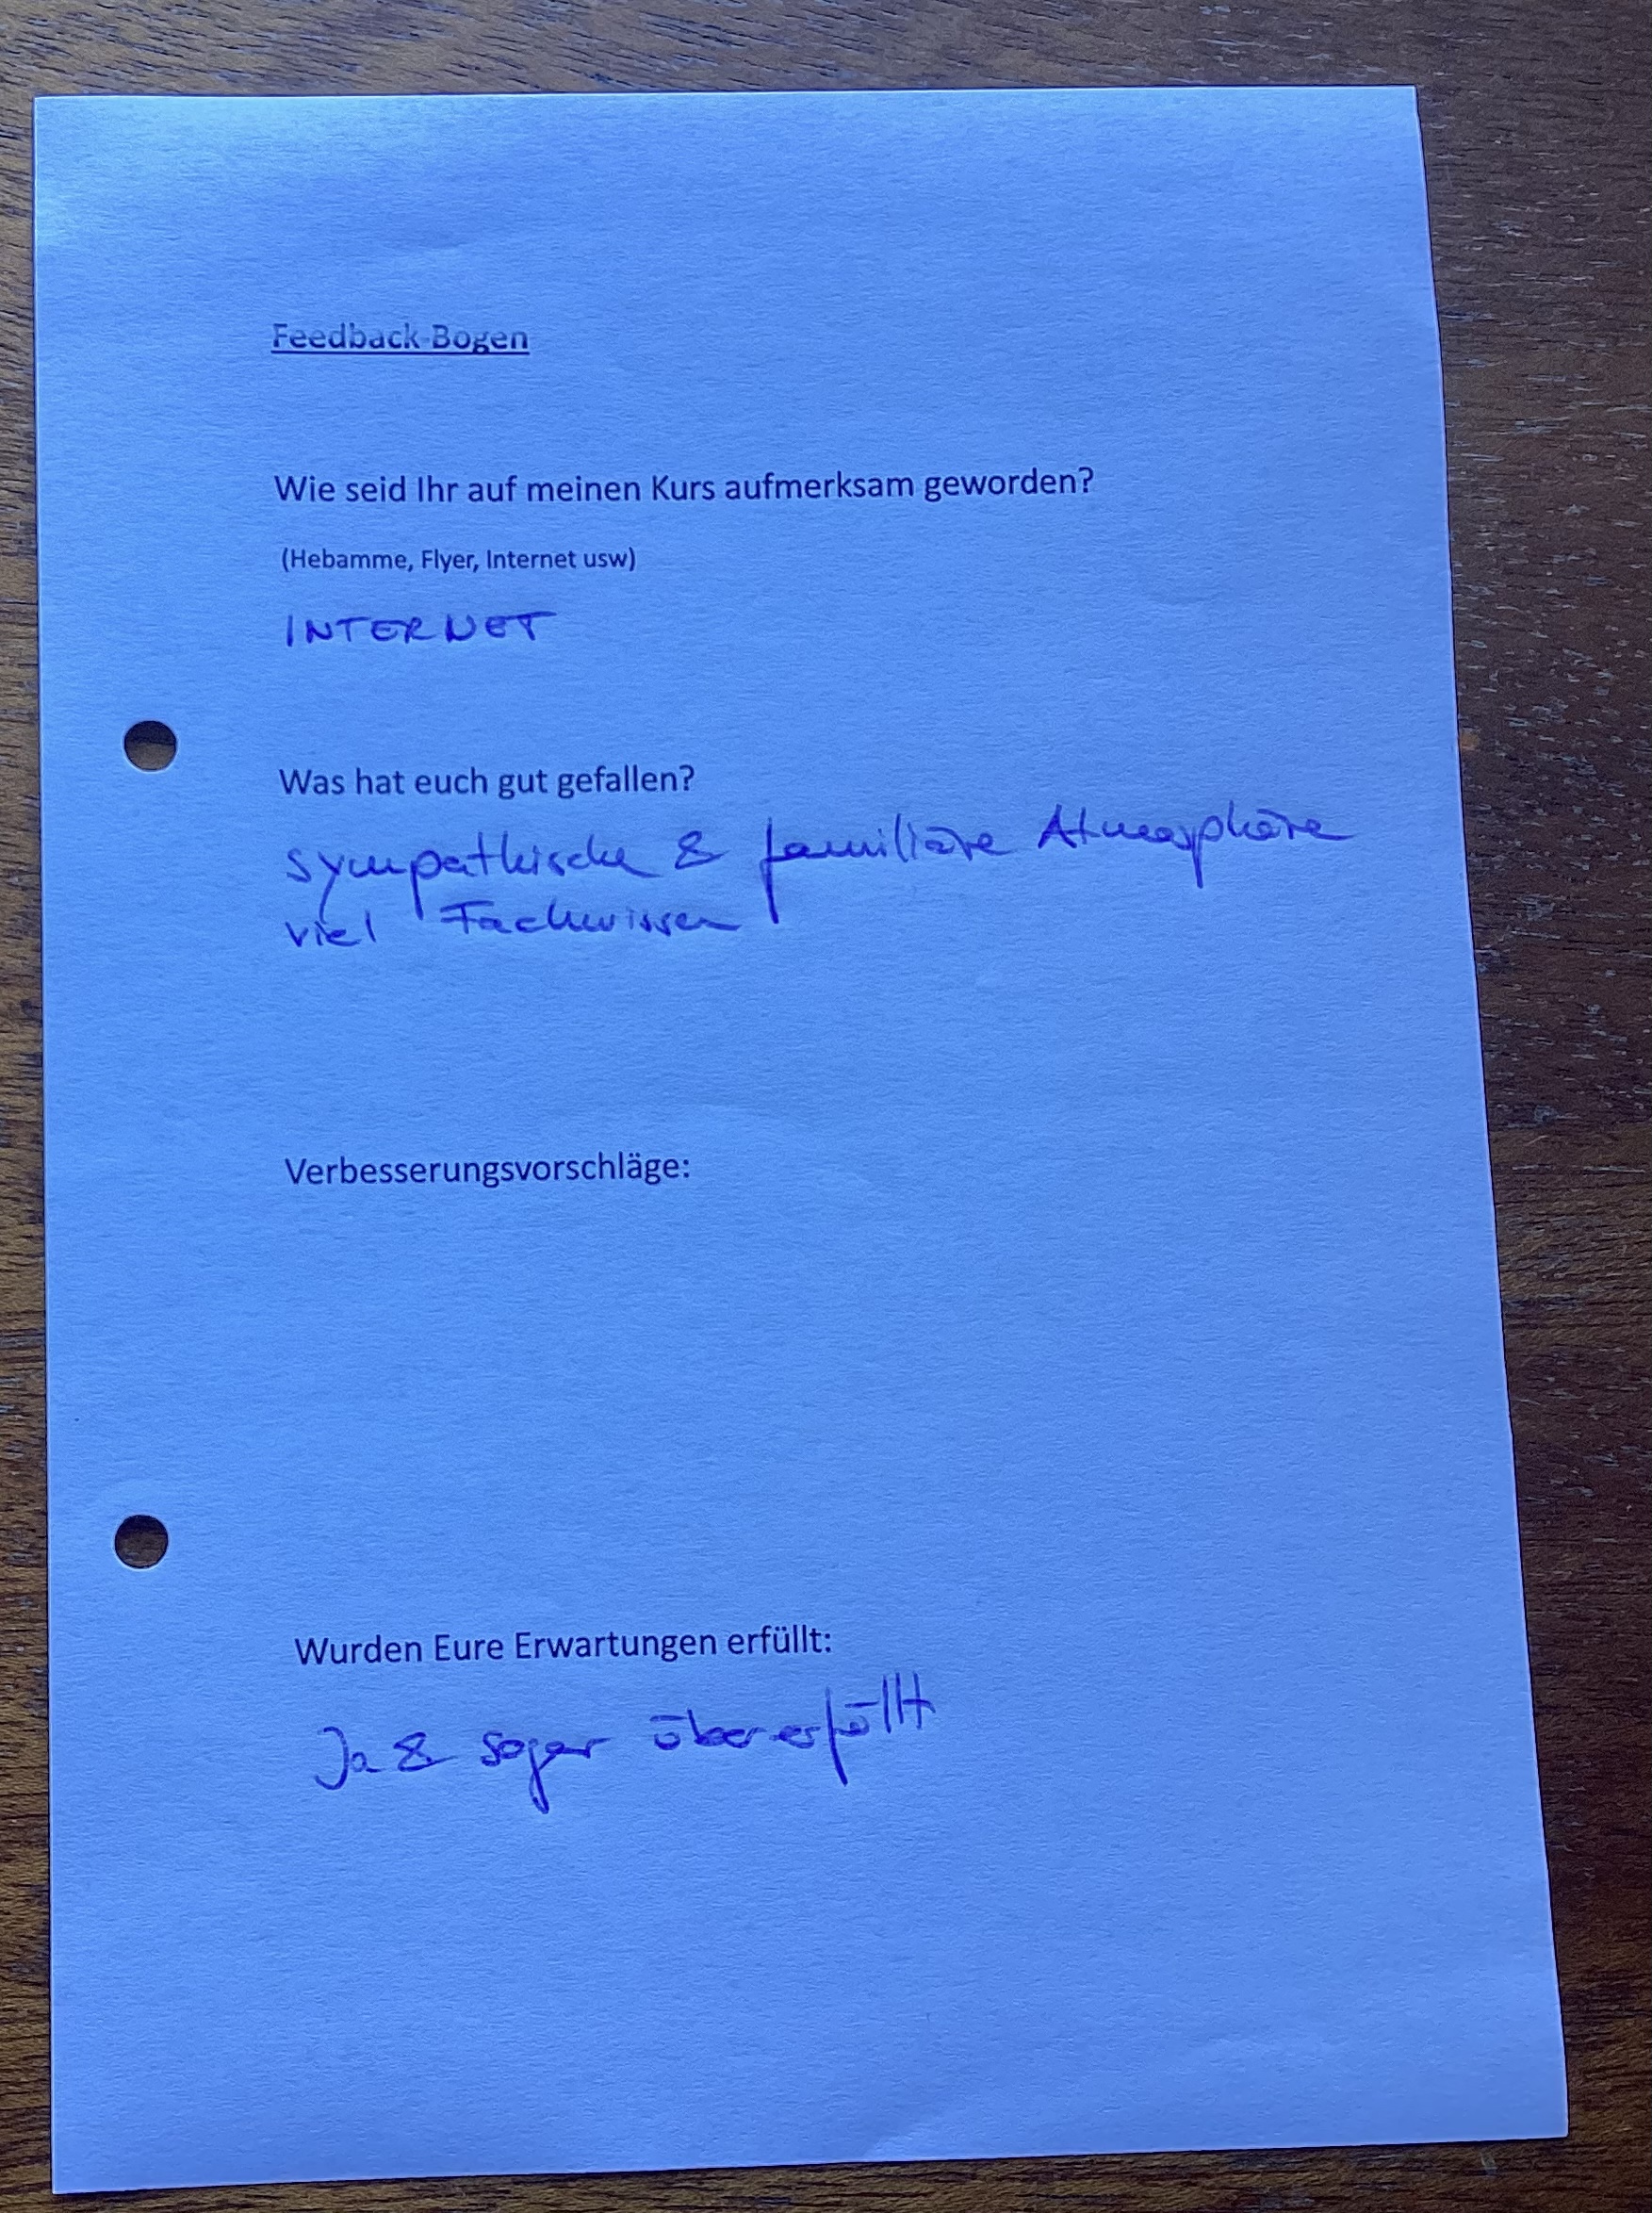 Feedback-Bogen
Wie seid Ihr auf meinen Kurs aufmerksam geworden?
(Hebamme, Flyer, Internet usw)
INTERNET
Was hat euch gut gefallen?
sympathische & familiäre Atmosphäre
viel Fachwissen
Verbesserungsvorschläge:
Wurden Eure Erwartungen erfüllt:
Ja & sogar übererfüllt